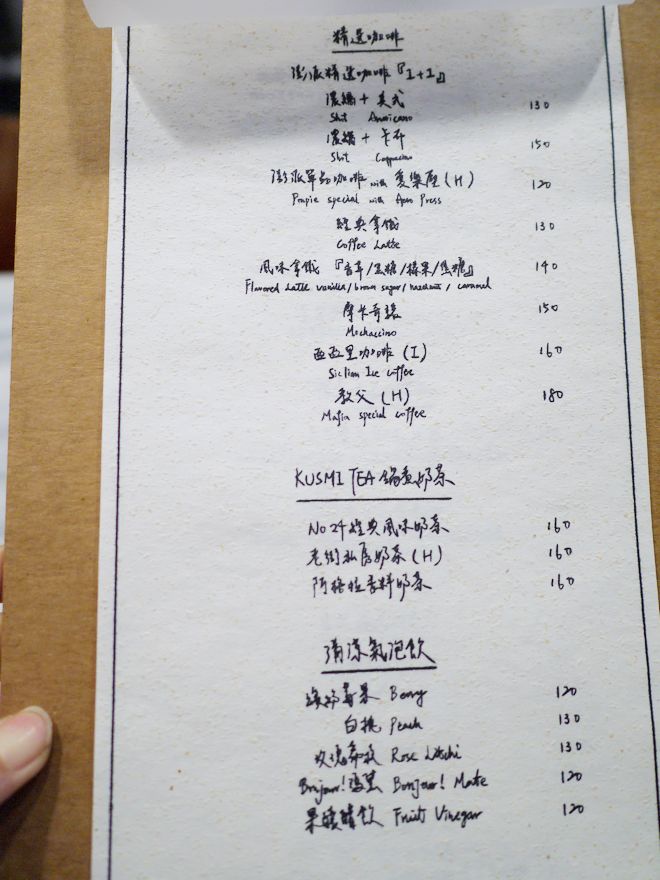 精選咖啡
澎派精選咖啡『1+1』
濃縮 + 美式 130
Shot Americano
濃縮 + 卡布 150
Shot Cappucino
澎派單品咖啡 with 愛樂壓 (H) 120
Propie special with Aero Press
經典拿鐵 130
Coffee Latte
風味拿鐵『香草/黑糖/榛果/焦糖』 140
Flavored Latte vanilla/brown sugar/hazelnut/caramel
摩卡奇諾 150
Mochaccino
西西里咖啡 (I) 160
Sicilian Ice coffee
教父 (H) 180
Mafia special coffee
KUSMI TEA 鍋煮奶茶
No 24 經典風味奶茶 160
老街私房奶茶 (H) 160
阿格拉香料奶茶 160
清涼氣泡飲
繽紛莓果 Berry 120
白桃 Peach 130
玫瑰荔枝 Rose Litchi 130
Bonjour! 瑪黛 Bonjour! Mate 120
果醋飲 Fruit Vinegar 120